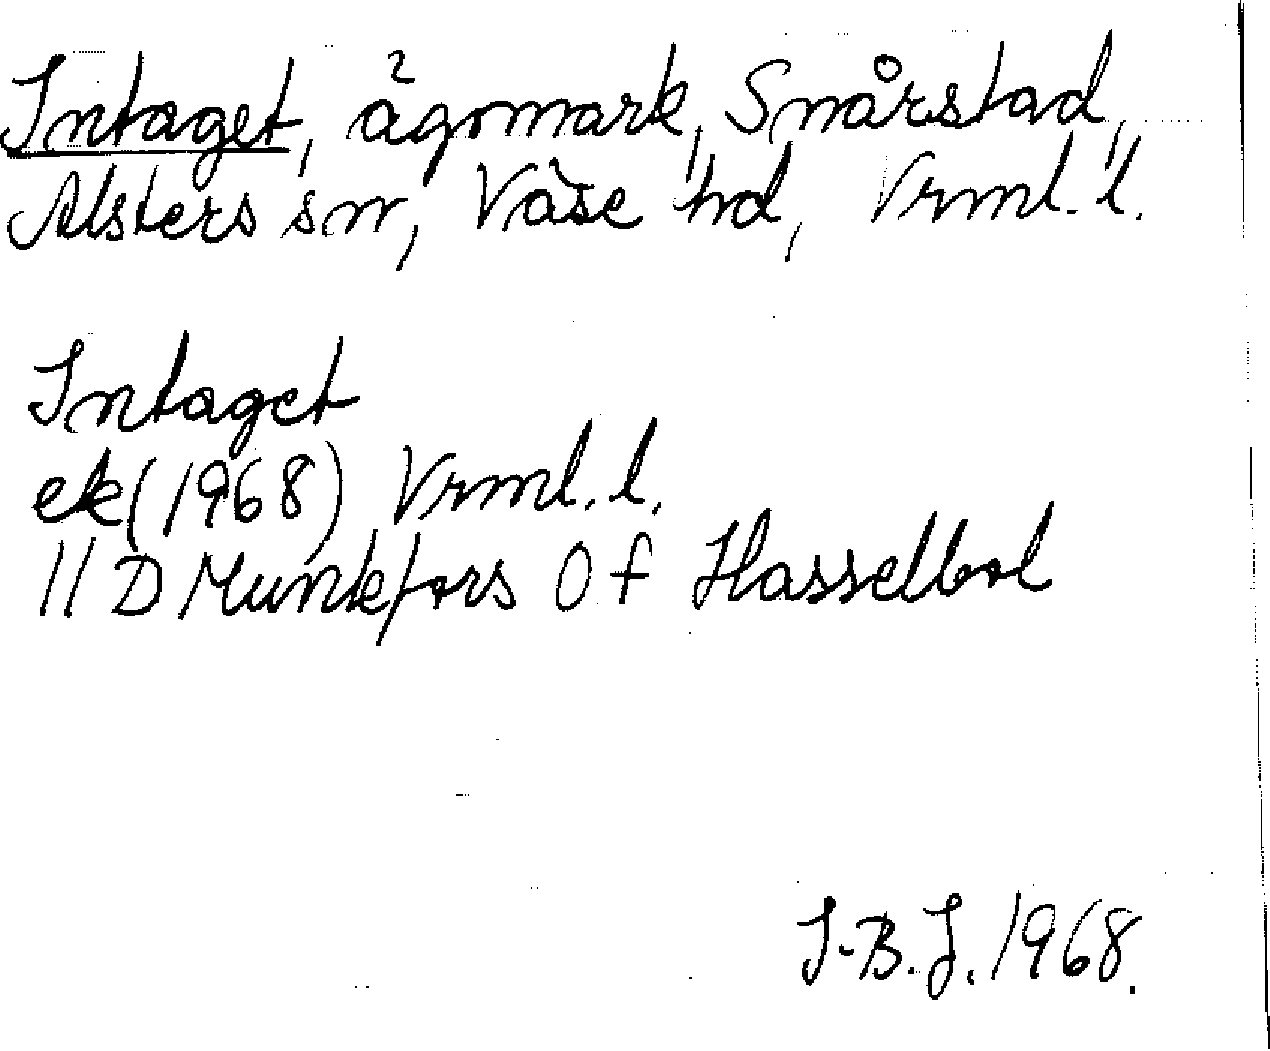 Intaget, ägomark, Snårstad,
Alsters sn, Väse hd, Vrml. l.
Intaget
ek (1968) Vrml. l.
11 D Munkfors 0 f Hasselbol
I-B. J. 1968.